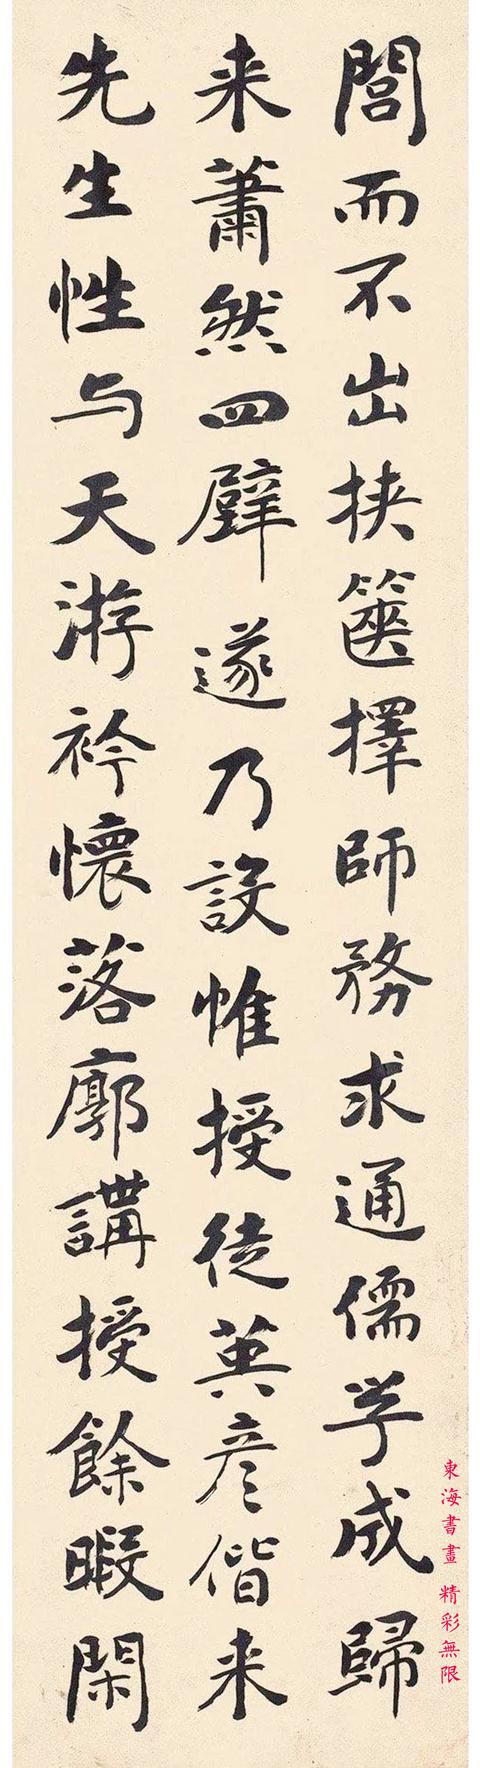 閭而不出挟篋擇師務求通儒学成歸
来蕭然四壁遂乃設帷授徒英彦偕来
先生性与天游衿懷落廓講授餘暇閑
東海書畫 精彩無限